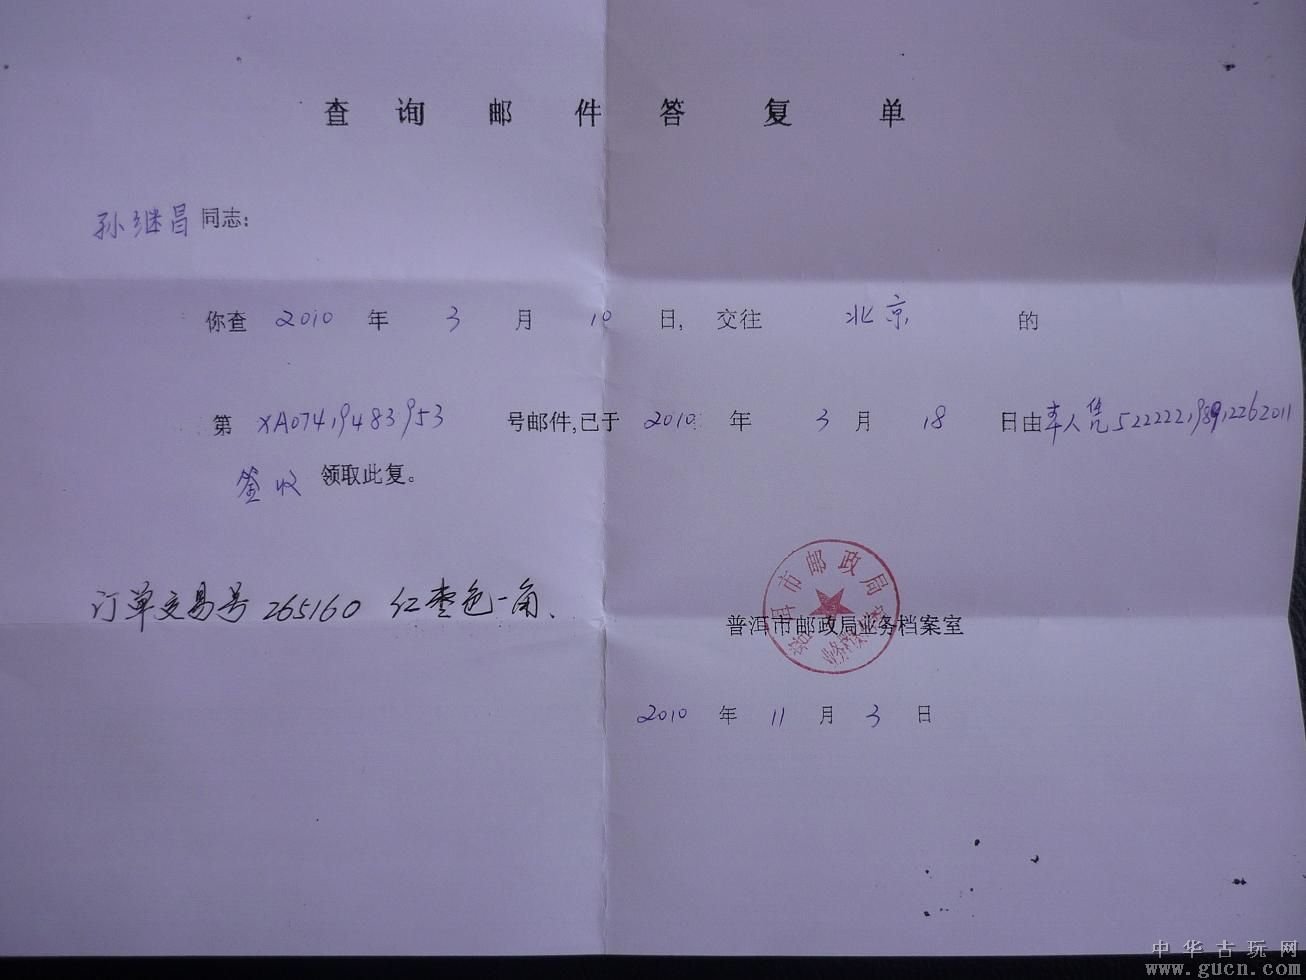 查询邮件答复单
孙继昌同志:
你查 2010 年 3 月 10 日, 交往 北京 的
第 XA07419483953 号邮件,已于 2010 年 3 月 18 日由本人凭522222198912262011
签收 领取此复。
订单交易号 265160 红枣色一角、
普洱市邮政局
业务档案室
普洱市邮政局业务档案室
2010 年 11 月 3 日
中华古玩网
www.gucn.com